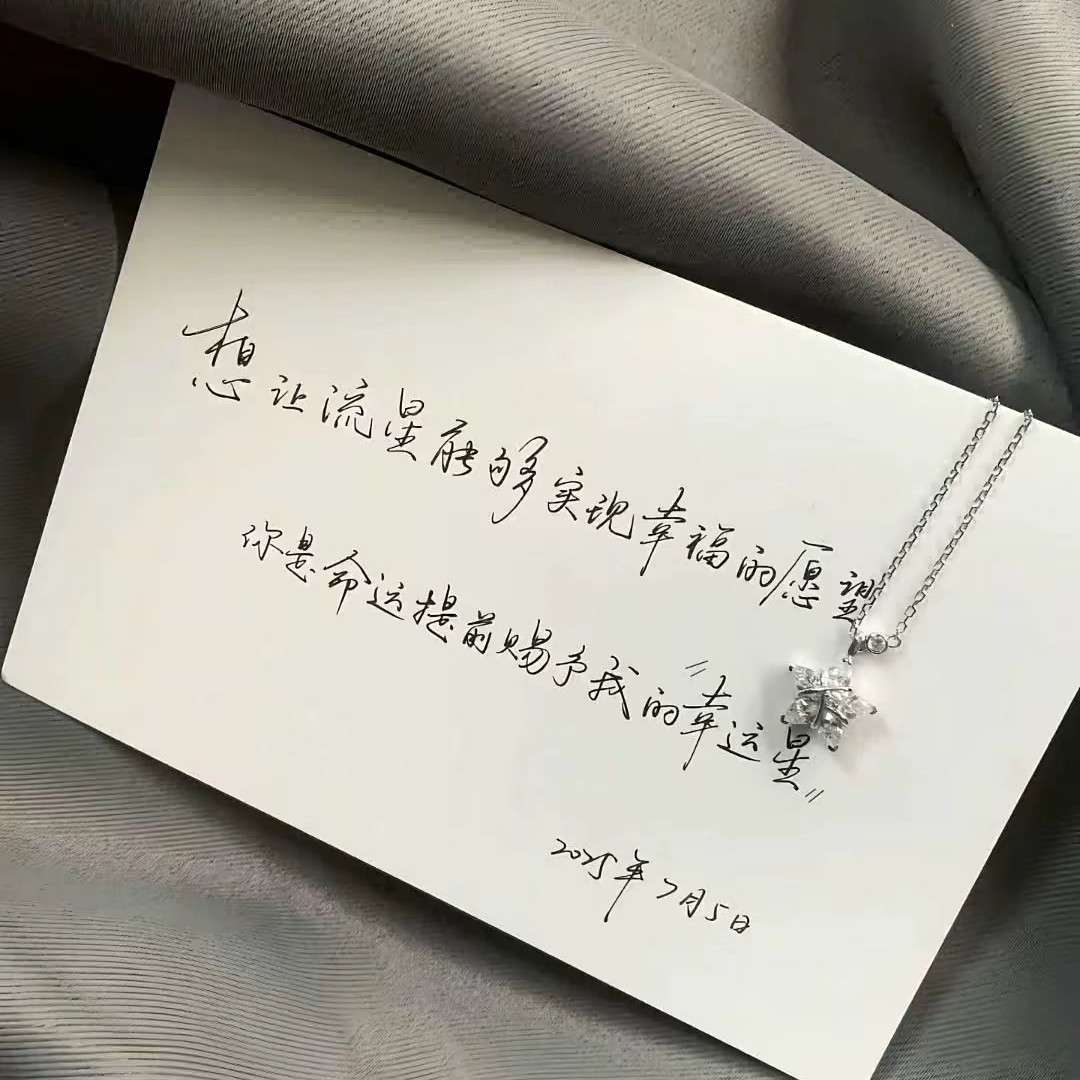 想让流星能够实现幸福的愿望
你是命运提前赐予我的"幸运星"
2025年7月5日